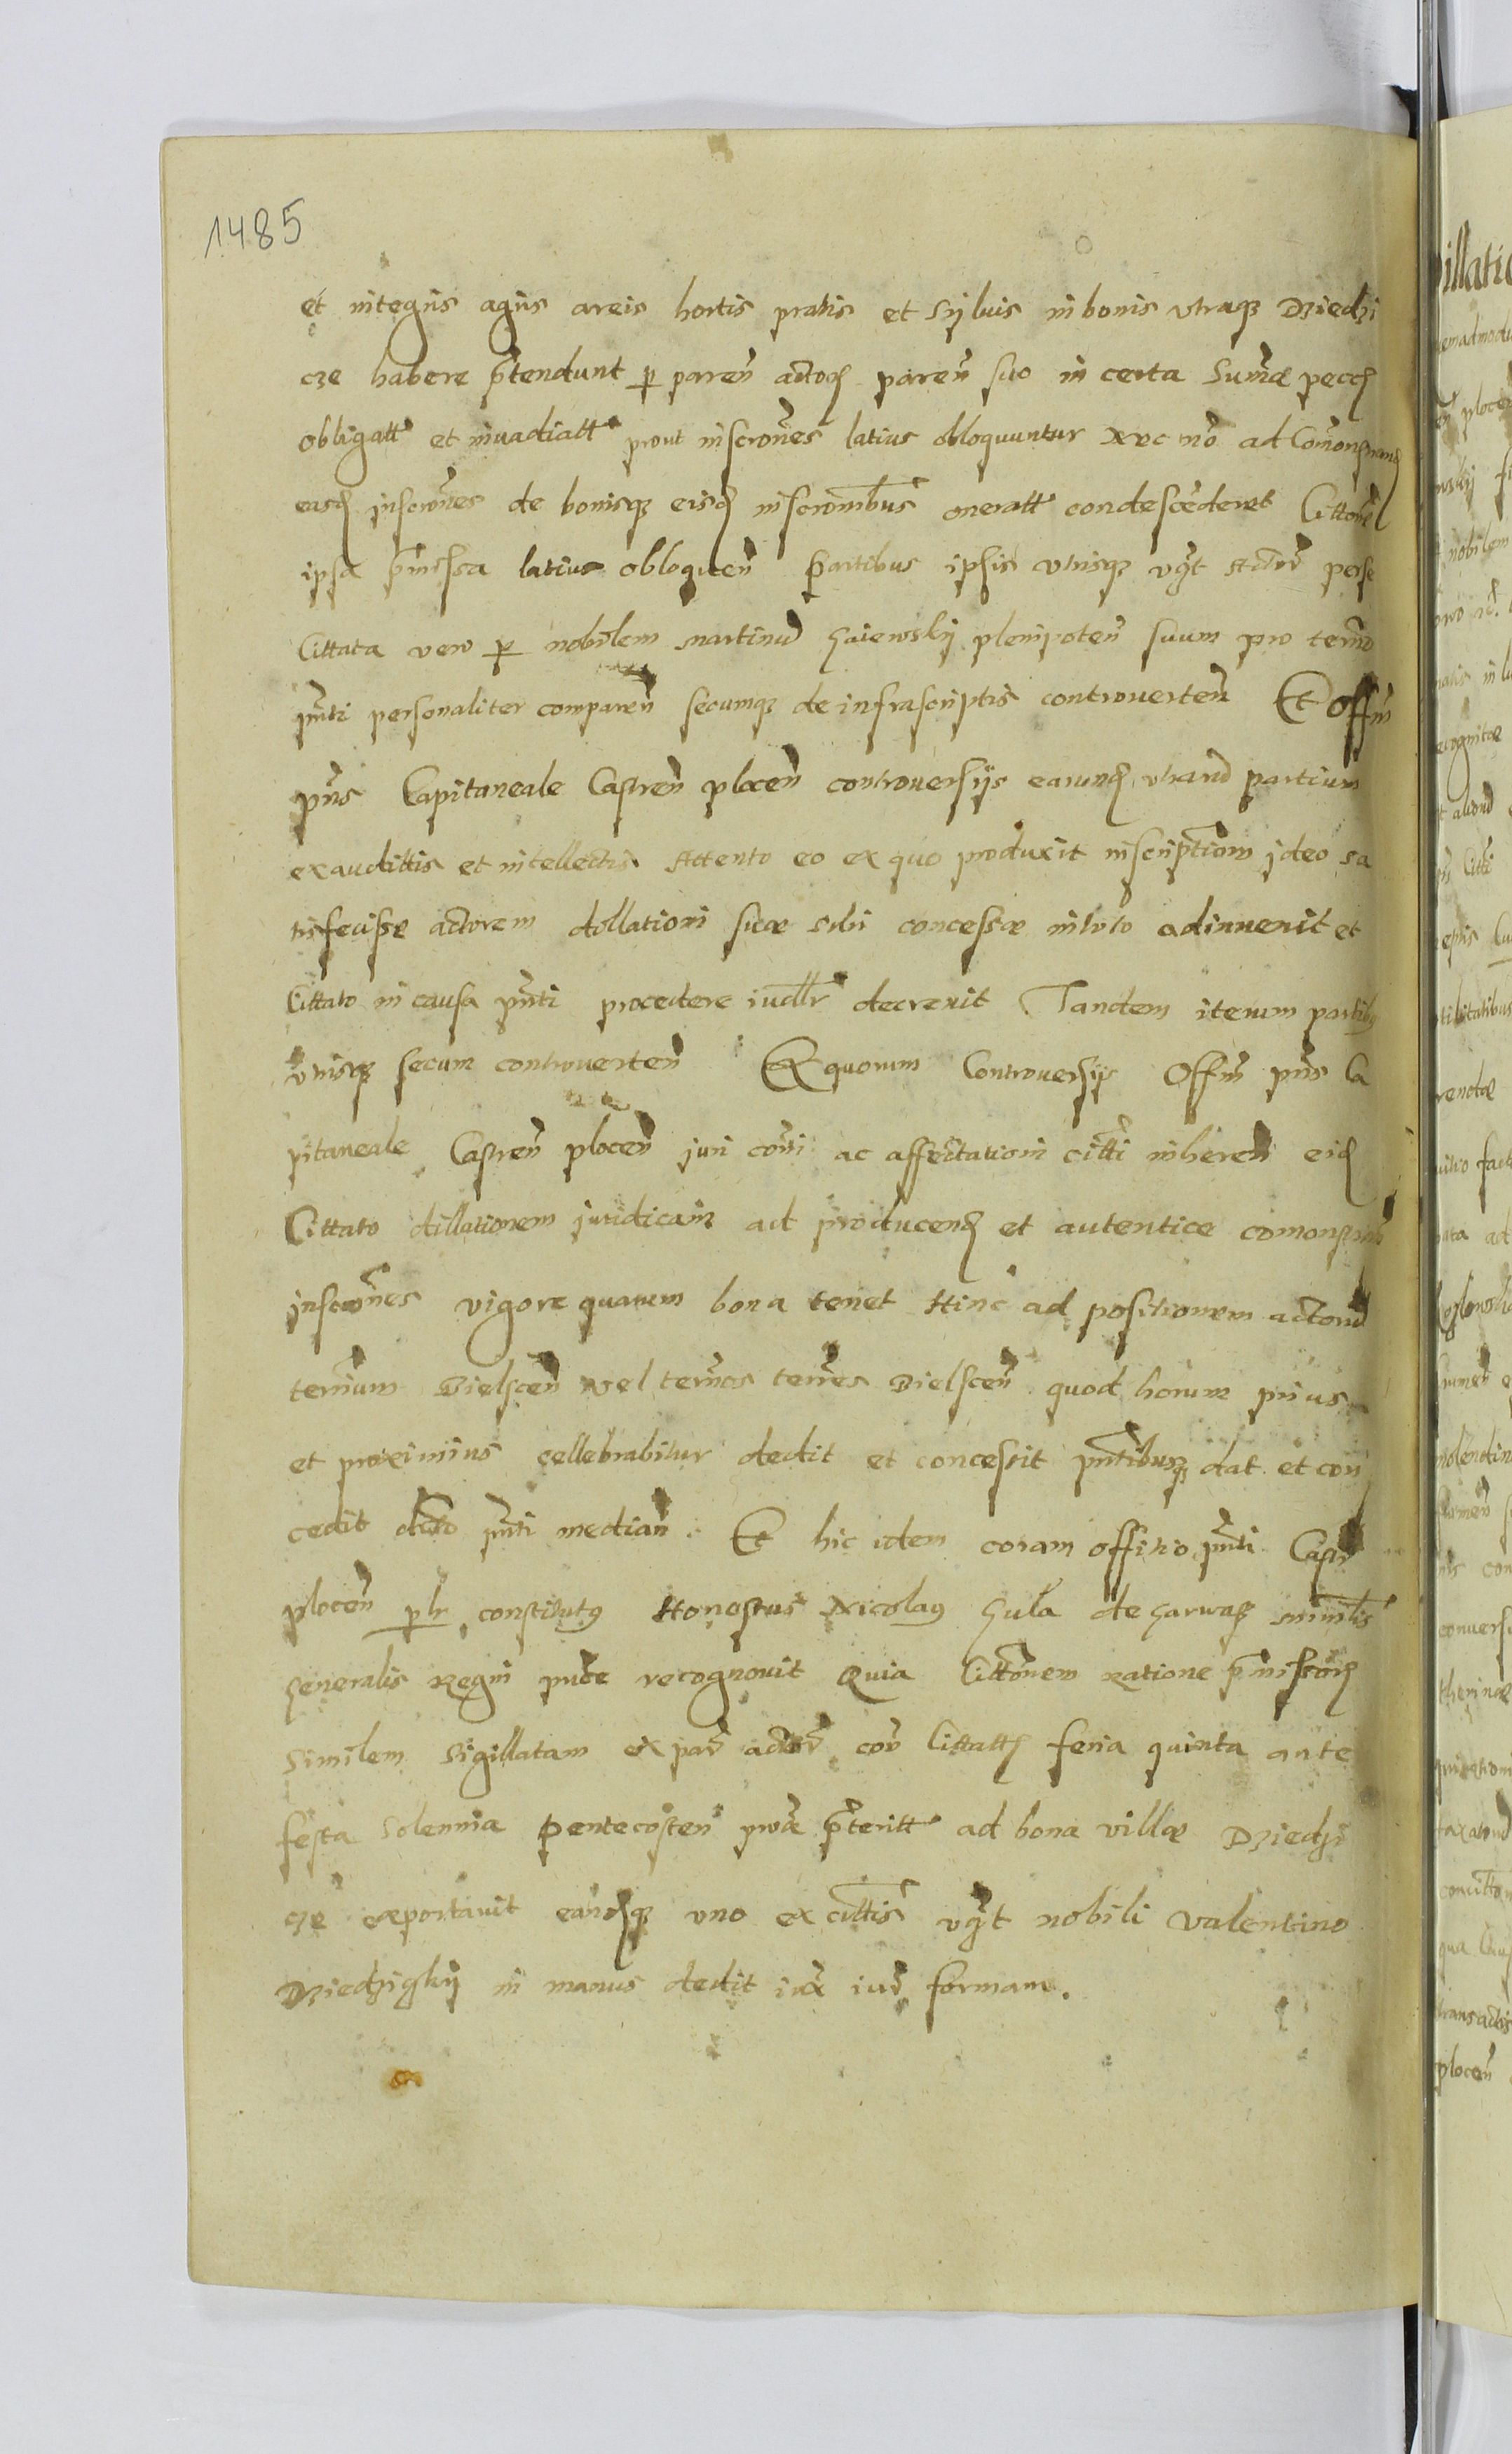 1485
et integris agris areis hortis pratis et sylvis in bonis utraq3 Dziedzi
cze habere p̃tendunt p paren̄ actor̄ paren̄ suo in certa summa pecc̄
obligatt et invadiatt prout inscrōnes latius obloquuntur nec nō ad com̄onstrand̄
easd̄ inscrōnes de bonisq3 eisd̄ inscronibus oneratt condescēderet Cittōne
ipsa p̃missa latius obloquen̄ Partibus ipsis utrisq3 vz̃t Actore per se
Cittata vero p nobilem Martinū Gaiewsky plenipoten̄ suum pro termō
pñti personaliter comparen̄ secumq3 de infrascriptis controverten̄ Et offm̄
pñs Capitaneale Castren̄ plocen̄ controversijs earund̄ utrarū partium
exaudittis et intellectis Attento eo ex quo produxit inscriptionē ideo sa
tisfecisse actorem dillationi suae sibi concessae in toto adinvenit et
Cittato in causa pñti procedere iudllr decrevit Tandem iterum partibus
utrisq3 secum controverten̄ Ex quorum Controversijs Offm̄ pñs Ca
pitaneale Castren̄ plocen̄ juri cōni ac affectationi citti inheren̄ eid̄
Cittato dillationem juridicam ad producend̄ et autentice comonstrand̄
inscrōnes vigore quarum bona tenet Hinc ad positionem actorū
termīnum Bielscen̄ vel termōs terrēs Bielscen̄ quod horum prius
et proximius cellebrabitur dedit et concessit pñtibusq3 dat et con
cedit decreto pñti median̄. Et hic idem coram offitio pñti Castr̄
plocen̄ plr constitutus Honestus Nicolaus Gula de Garwaz mīnilis
generalis Regni pub̄ce recognovit Quia Cittōnem ratione p̃missor̄
similem sigillatam ex par̄ actor̄ con̄ Cittatt̄ feria quinta ante
festa solennia Pentecosten̄ prox̄ p̃teritt ad bona villae Dziedzi
cze exportavit eand̄q3 uno ex cittis vz̃t nobili Valentino
Dziedzigky in manus dedit iux̄ iur̄ formam.